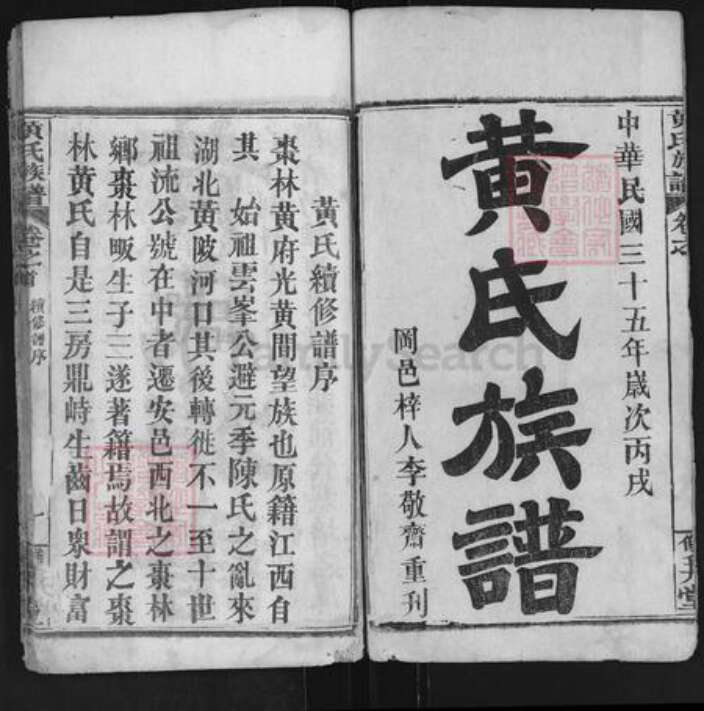 黃氏族譜 卷之
中華民國三十五年歲次丙戌
黃氏族譜
岡邑梓人李敬齋重刊
黃氏續修譜序
棗林黃府光黃間望族也原籍江西自
其 始祖雲峯公避元季陳氏之亂來
湖北黃陂河口其後轉徙不一至十世
祖流公號在中者遷安邑西北之棗林
鄉棗林畈生子三遂著籍焉故謂之棗
林黃氏自是三房鼎峙生齒日衆財富
黃氏族譜 卷之首 續修譜序 一
FamilySearch